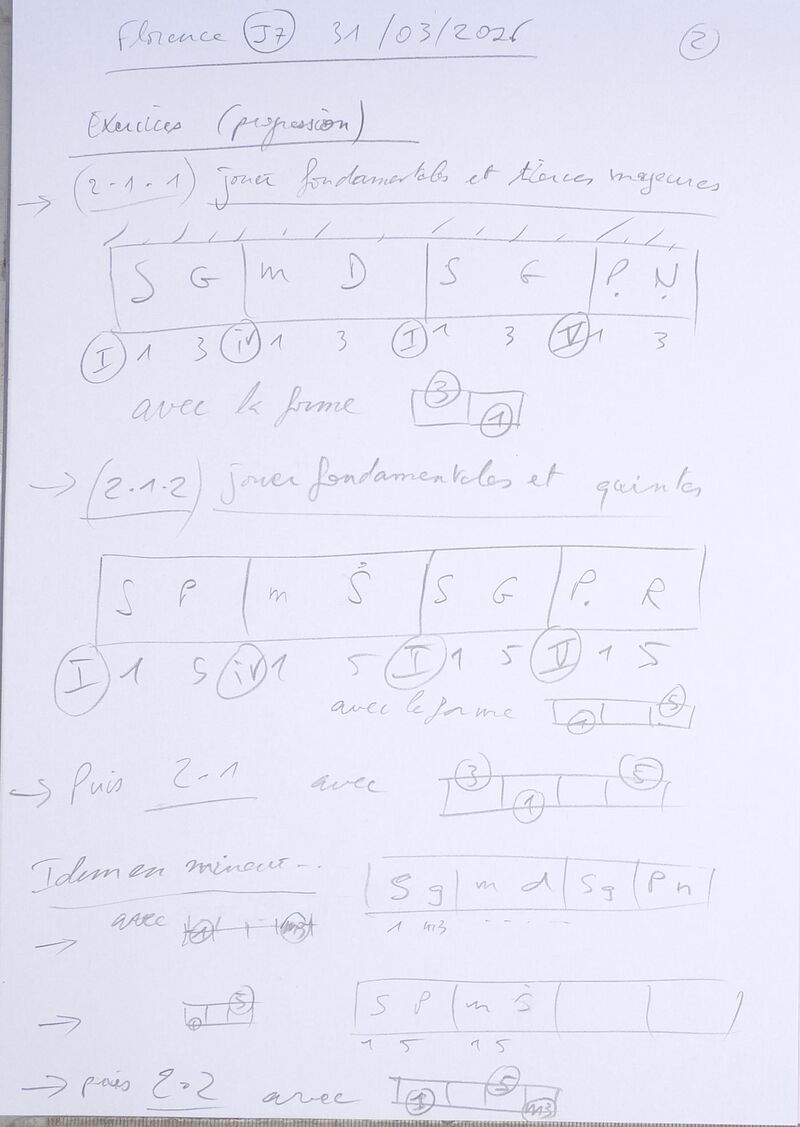 Florence J7 31/03/2026 2
Exercices (progression)
→ (2-1-1) jouer fondamentales et tierces majeures
S G | m D | S G | P. N.
I 1 3 iv 1 3 I 1 3 V 1 3
avec la forme 3 1
→ (2-1-2) jouer fondamentales et quintes
S P | m Ṡ | S G | P. R
I 1 5 iv 1 5 I 1 5 V 1 5
avec la forme 1 5
→ Puis 2-1 avec 3 1 5
Idem en mineur... | S g | m d | S g | P n |
→ avec 1 m3 1 m3 - - - - -
→ 1 5 S P | m Ṡ | | |
1 5 1 5
→ puis 2-2 avec 1 5 m3